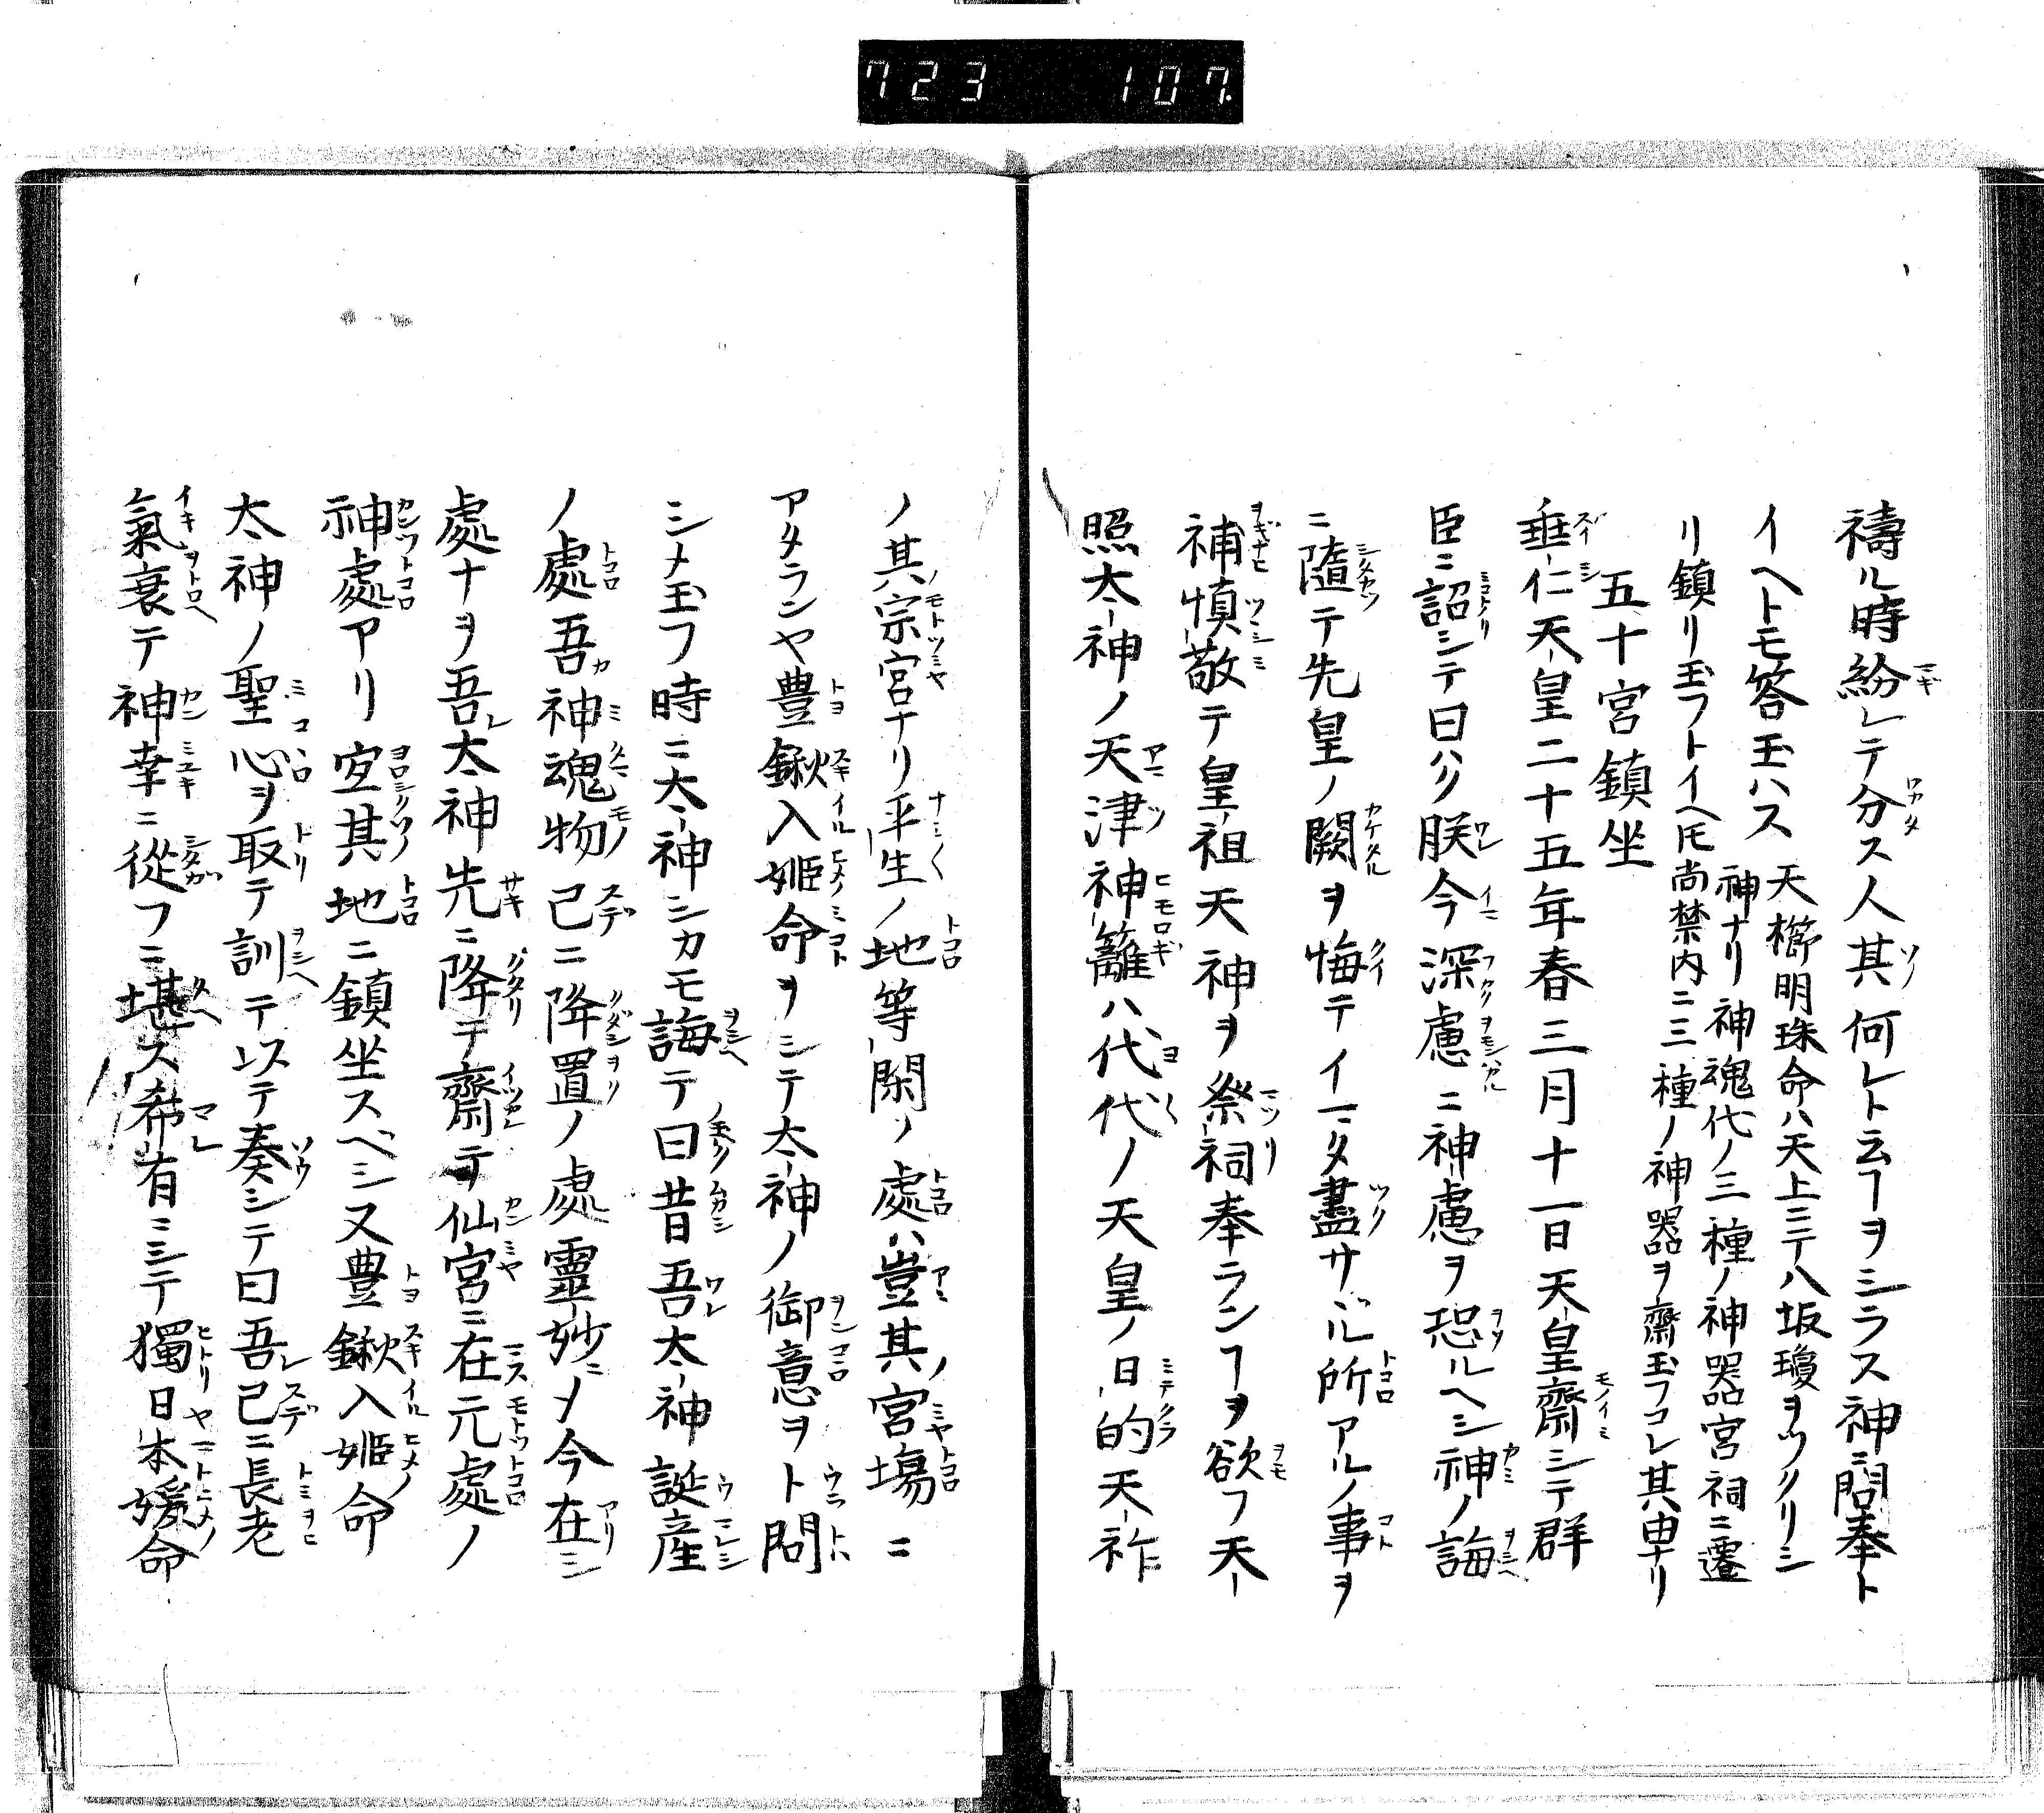 723 107.
禱ル時紛レテ分ス人其何レト云ヿヲシラス神ニ問奉ト
イヘトモ答玉ハス天櫛明珠命ハ天上ニテ八坂瓊ヲツクリシ
神ナリ神魂代ノ三種ノ神器宮祠ニ遷
リ鎮リ玉フトイヘ𪜈尚禁内ニ三種ノ神器ヲ齋玉フコレ其申ナリ
五十宮鎮坐
垂仁天皇二十五年春三月十一日天皇齋シテ群
臣ニ詔シテ曰ハク朕今深慮ニ神慮ヲ恐ルヘシ神ノ誨
ニ隨テ先皇ノ闕ヲ悔テイマタ盡サヾル所アルノ事ヲ
補慎敬テ皇祖天神ヲ祭祠奉ランヿヲ欲フ天
照太神ノ天津神籬ハ代代ノ天皇ノ日的天祚
ノ其宗宮ナリ平生ノ地等閑ノ處ハ豈其宮塲ニ
アタランヤ豊鍬入姫命ヲシテ太神ノ御意ヲト問
シメ玉フ時ニ太神シカモ誨テ曰昔吾太神誕産
ノ處吾神魂物已ニ降置ノ處靈妙ニメ今在シ
處ナヲ吾太神先ニ降テ齋テ仙宮ニ在元處ノ
神處アリ宜其地ニ鎮坐スベシ又豊鍬入姫命
太神ノ聖心ヲ取テ訓テ以テ奏シテ曰吾已ニ長老
氣衰テ神幸ニ從フニ堪ス希有ニシテ獨日本媛命